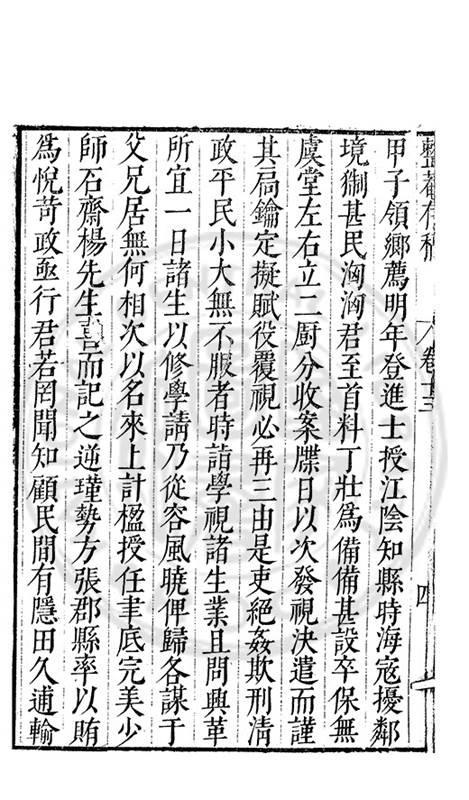 整菴存稿 卷十三 四
甲子領鄉薦明年登進士授江陰知縣時海寇擾鄰
境禦甚民洶洶君至首料丁壯為備備甚設卒保無
虞堂左右立二厨分收案牒日以次發視決遣而謹
其扃鑰定擬賦役覆視必再三由是吏絕姦欺刑清
政平民小大無不服者時詣學視諸生業且問興革
所宜一日諸生以修學請乃從容風曉俾歸各謀于
父兄居無何相次以名來上計楹授任事底完美少
師石齋楊先生喜而記之逆瑾勢方張郡縣率以賄
為悅苛政亟行君若罔聞知顧民間有隱田久逋輸